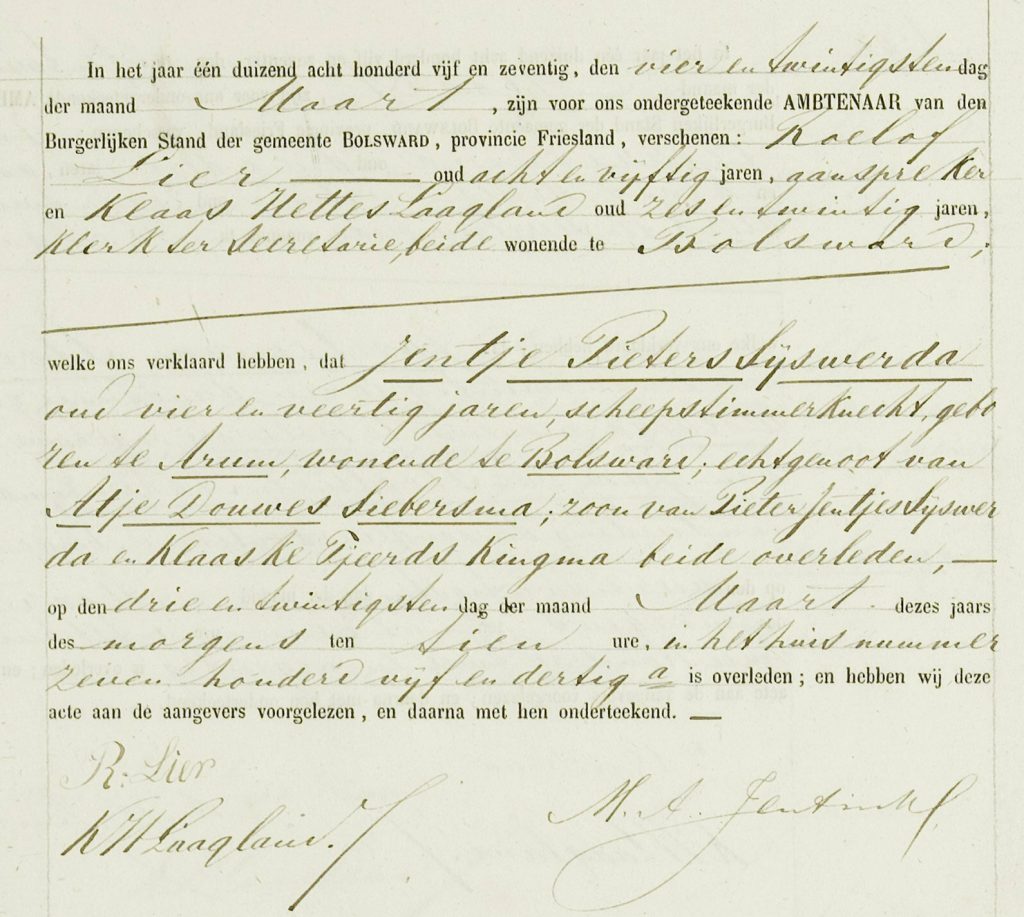 In het jaar één duizend acht honderd vijf en zeventig, den vier en twintigsten dag
der maand Maart, zijn voor ons ondergeteekende AMBTENAAR van den
Burgerlijken Stand der gemeente BOLSWARD, provincie Friesland, verschenen: Roelof
Lier oud acht en vijftig jaren, aanspreker
en Klaas Hettes Laagland oud zes en twintig jaren,
klerk ter secretarie, beide wonende te Bolsward;
welke ons verklaard hebben, dat Jentje Pieters Sijswerda
oud vier en veertig jaren, scheepstimmerknecht, gebo
ren te Arum, wonende te Bolsward; echtgenoot van
Atje Douwes Siebersma; zoon van Pieter Jentjes Sijswer
da en Klaaske Tjeerds Kingma beide overleden,—
op den drie en twintigsten dag der maand Maart dezes jaars
des morgens ten tien ure, in het huis nummer
zeven honderd vijf en dertig a is overleden; en hebben wij deze
acte aan de aangevers voorgelezen, en daarna met hen onderteekend. —
R. Lier
K H Laagland.
M. A.